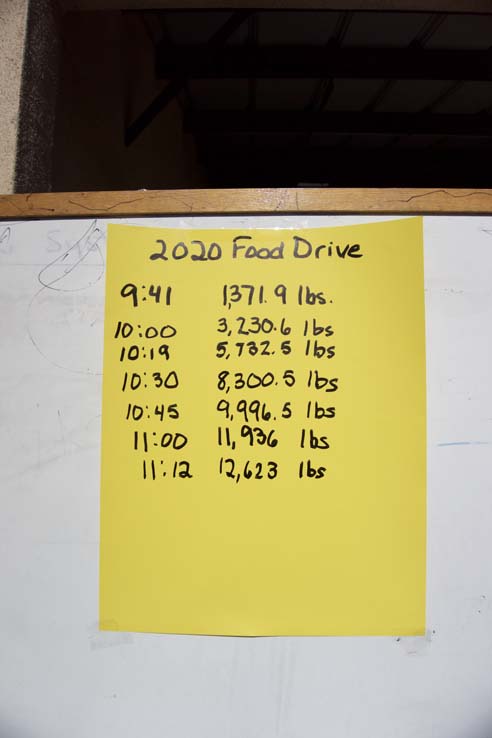 2020 Food Drive
9:41 1,371.9 lbs.
10:00 3,230.6 lbs
10:19 5,732.5 lbs
10:30 8,300.5 lbs
10:45 9,996.5 lbs
11:00 11,936 lbs
11:12 12,623 lbs